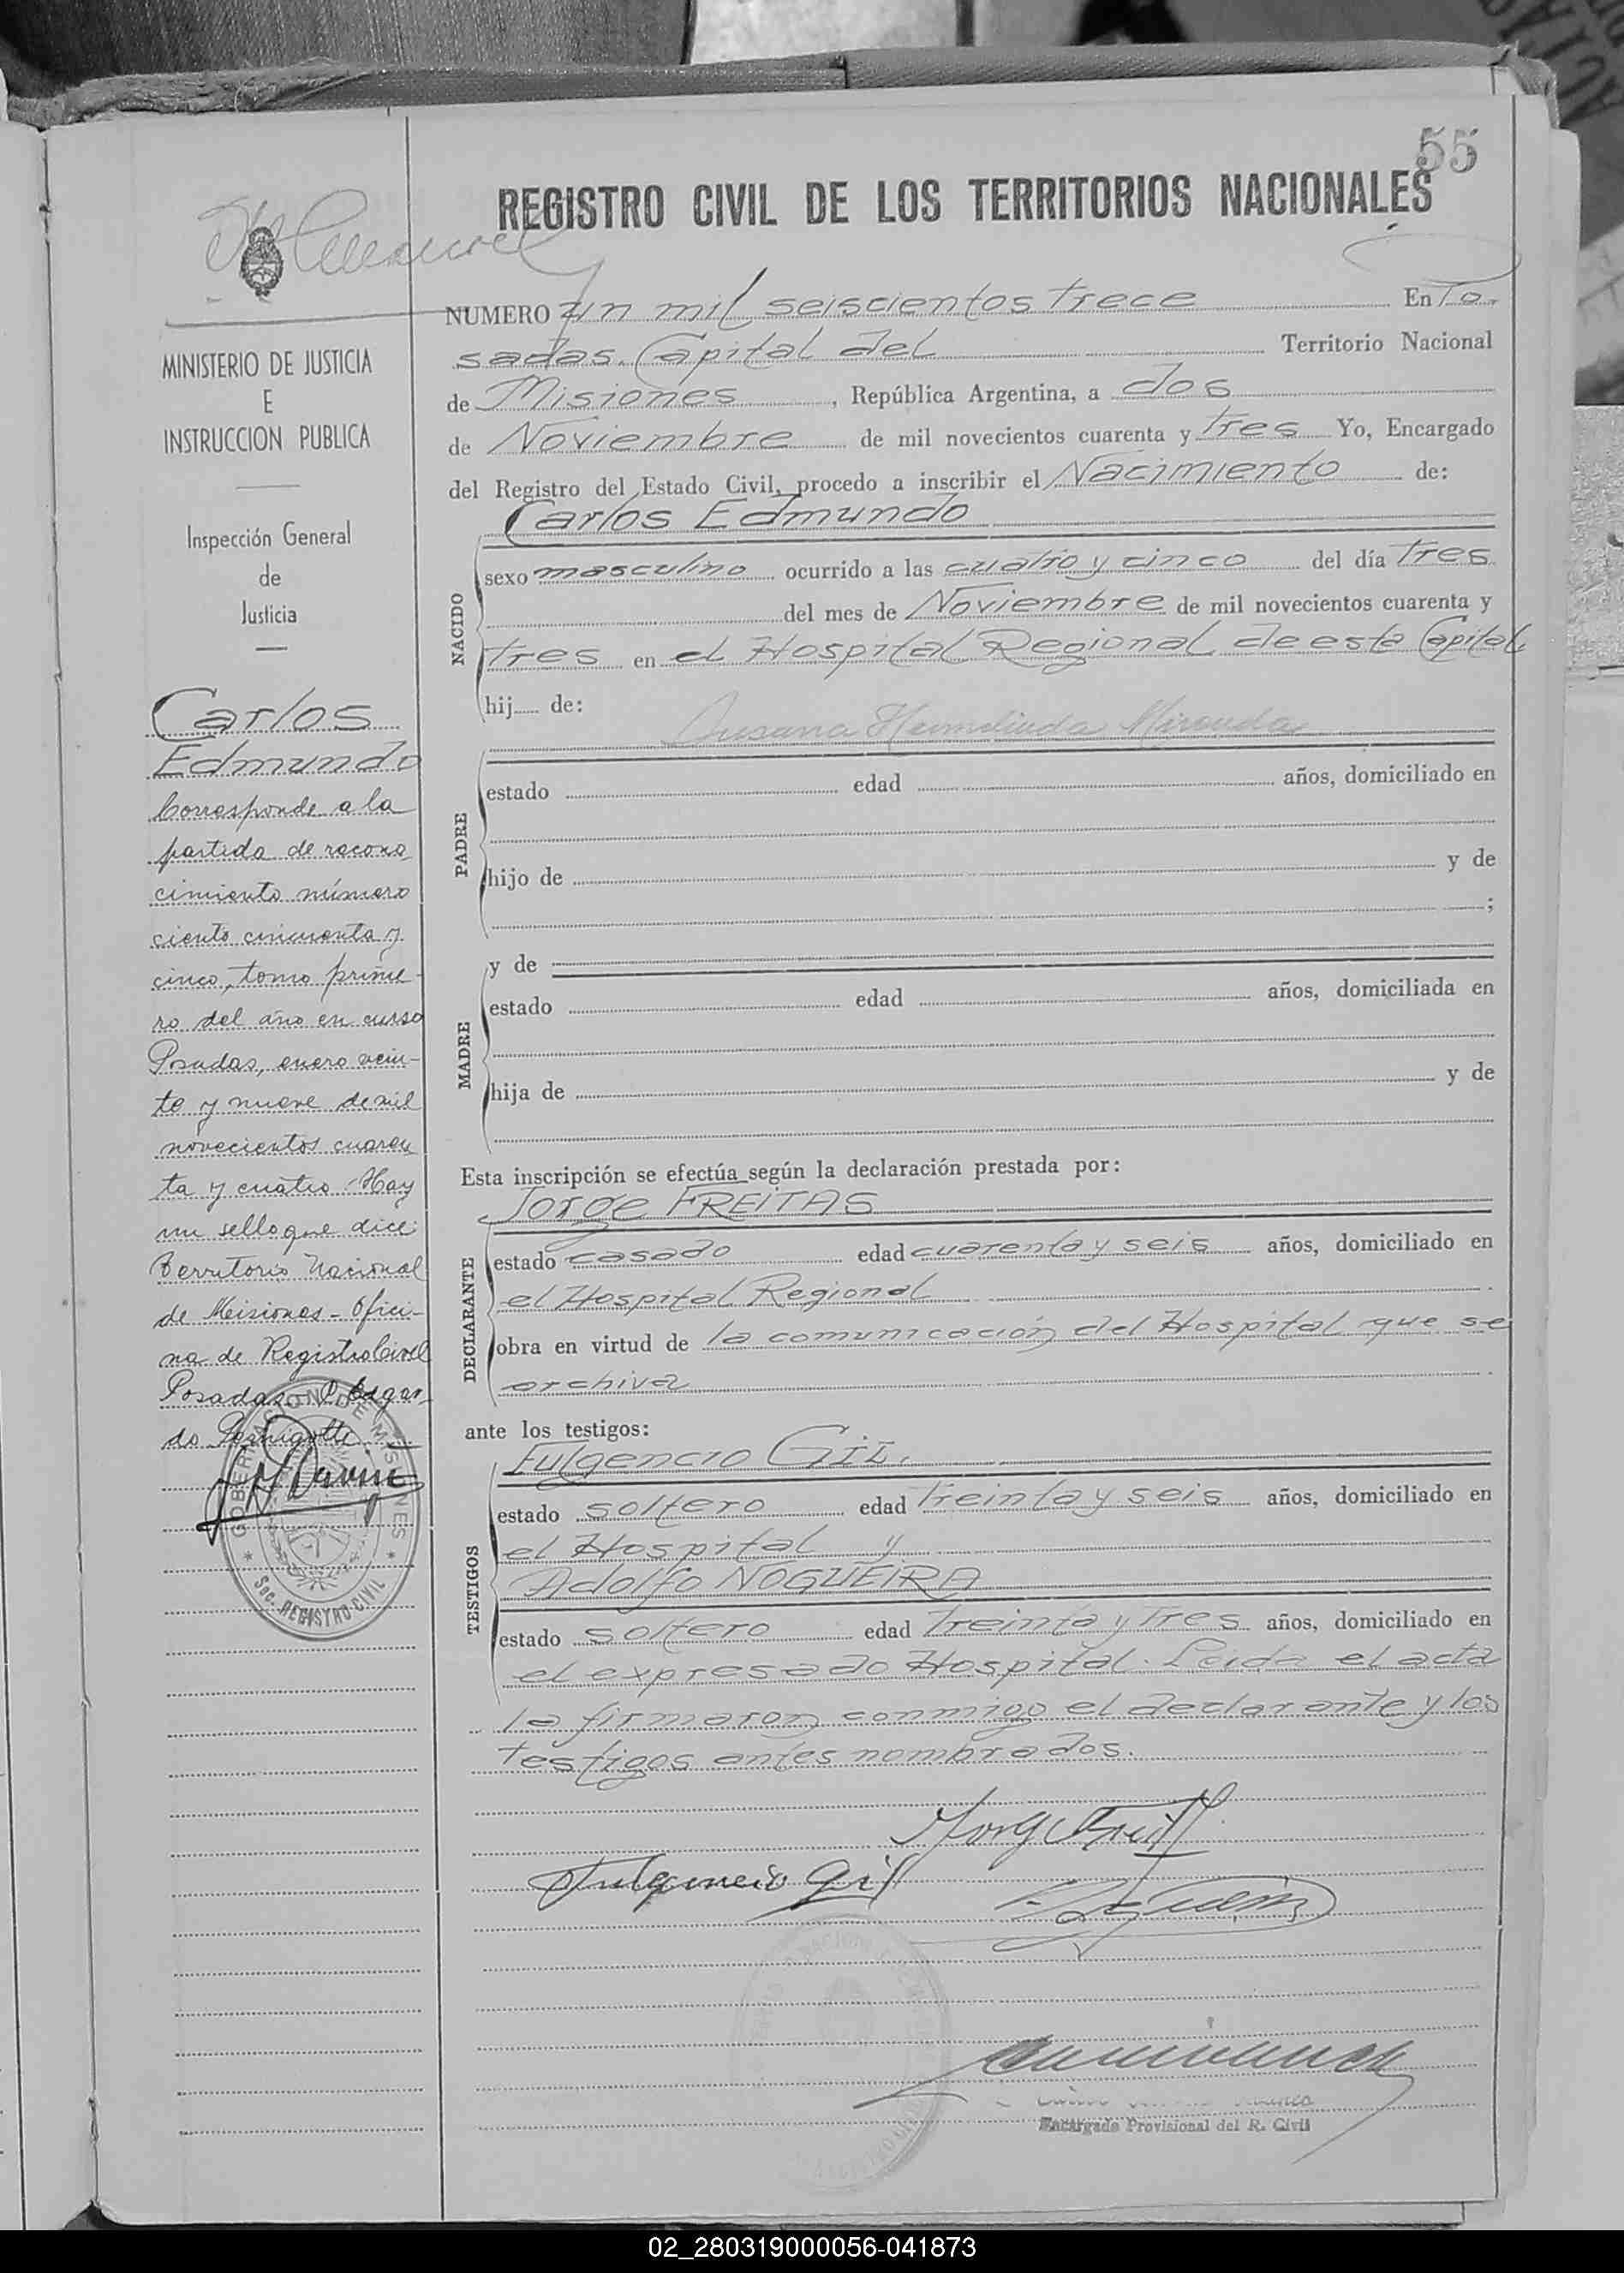 55
REGISTRO CIVIL DE LOS TERRITORIOS NACIONALES
MINISTERIO DE JUSTICIA
E
INSTRUCCION PUBLICA
Inspección General
de
Justicia
Carlos
Edmundo
Corresponde a la
partida de recono
cimiento número
ciento cincuenta y
cinco, tomo prime-
ro del año en curso
Posadas, enero vein-
te y nueve de mil
novecientos cuaren
ta y cuatro. Hay
un sello que dice:
Territorio Nacional
de Misiones - Ofici-
na de Registro Civil
Posadas
do
GOBERNACION DE MISIONES
Sec. REGISTRO CIVIL
NUMERO Un mil seiscientos trece En Po-
sadas. Capital del Territorio Nacional
de Misiones, República Argentina, a dos
de Noviembre de mil novecientos cuarenta y tres Yo, Encargado
del Registro del Estado Civil, procedo a inscribir el Nacimiento de:
NACIDO
Carlos Edmundo
sexo masculino ocurrido a las cuatro y cinco del día tres
del mes de Noviembre de mil novecientos cuarenta y
tres en el Hospital Regional de esta Capital
hij de:
Susana Miranda
PADRE
estado edad años, domiciliado en
hijo de y de
;
y de
MADRE
estado edad años, domiciliada en
hija de y de
Esta inscripción se efectúa según la declaración prestada por:
DECLARANTE
Jorge FREITAS
estado casado edad cuarenta y seis años, domiciliado en
el Hospital Regional
obra en virtud de la comunicación del Hospital que se
archiva
ante los testigos:
TESTIGOS
Fulgencio GIL.
estado soltero edad treinta y seis años, domiciliado en
el Hospital y
Adolfo NOGUEIRA
estado soltero edad treinta y tres años, domiciliado en
el expresado Hospital. Leida el acta
la firmaron conmigo el declarante y los
testigos antes nombrados.
Jorge Freit
Fulgencio Gil
Encargado Provisional del R. Civil
02_280319000056-041873